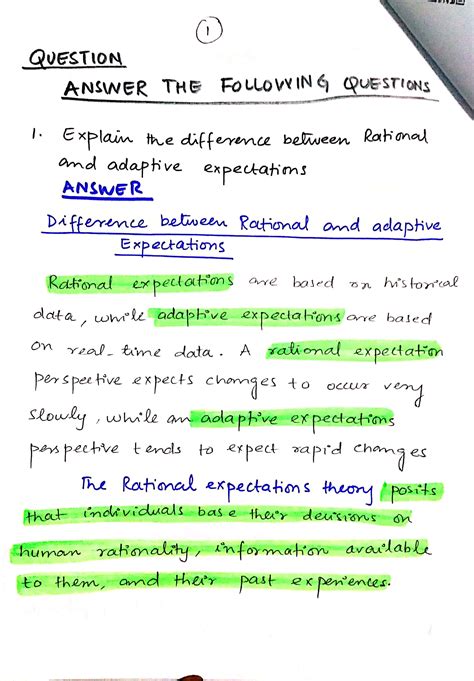 1
QUESTION
ANSWER THE FOLLOWING QUESTIONS
1. Explain the difference between Rational
and adaptive expectations
ANSWER
Difference between Rational and adaptive
Expectations
Rational expectations are based on historical
data, while adaptive expectations are based
on real-time data. A rational expectation
perspective expects changes to occur very
slowly, while an adaptive expectations
perspective tends to expect rapid changes
The Rational expectations theory posits
that individuals base their decisions on
human rationality, information available
to them, and their past experiences.